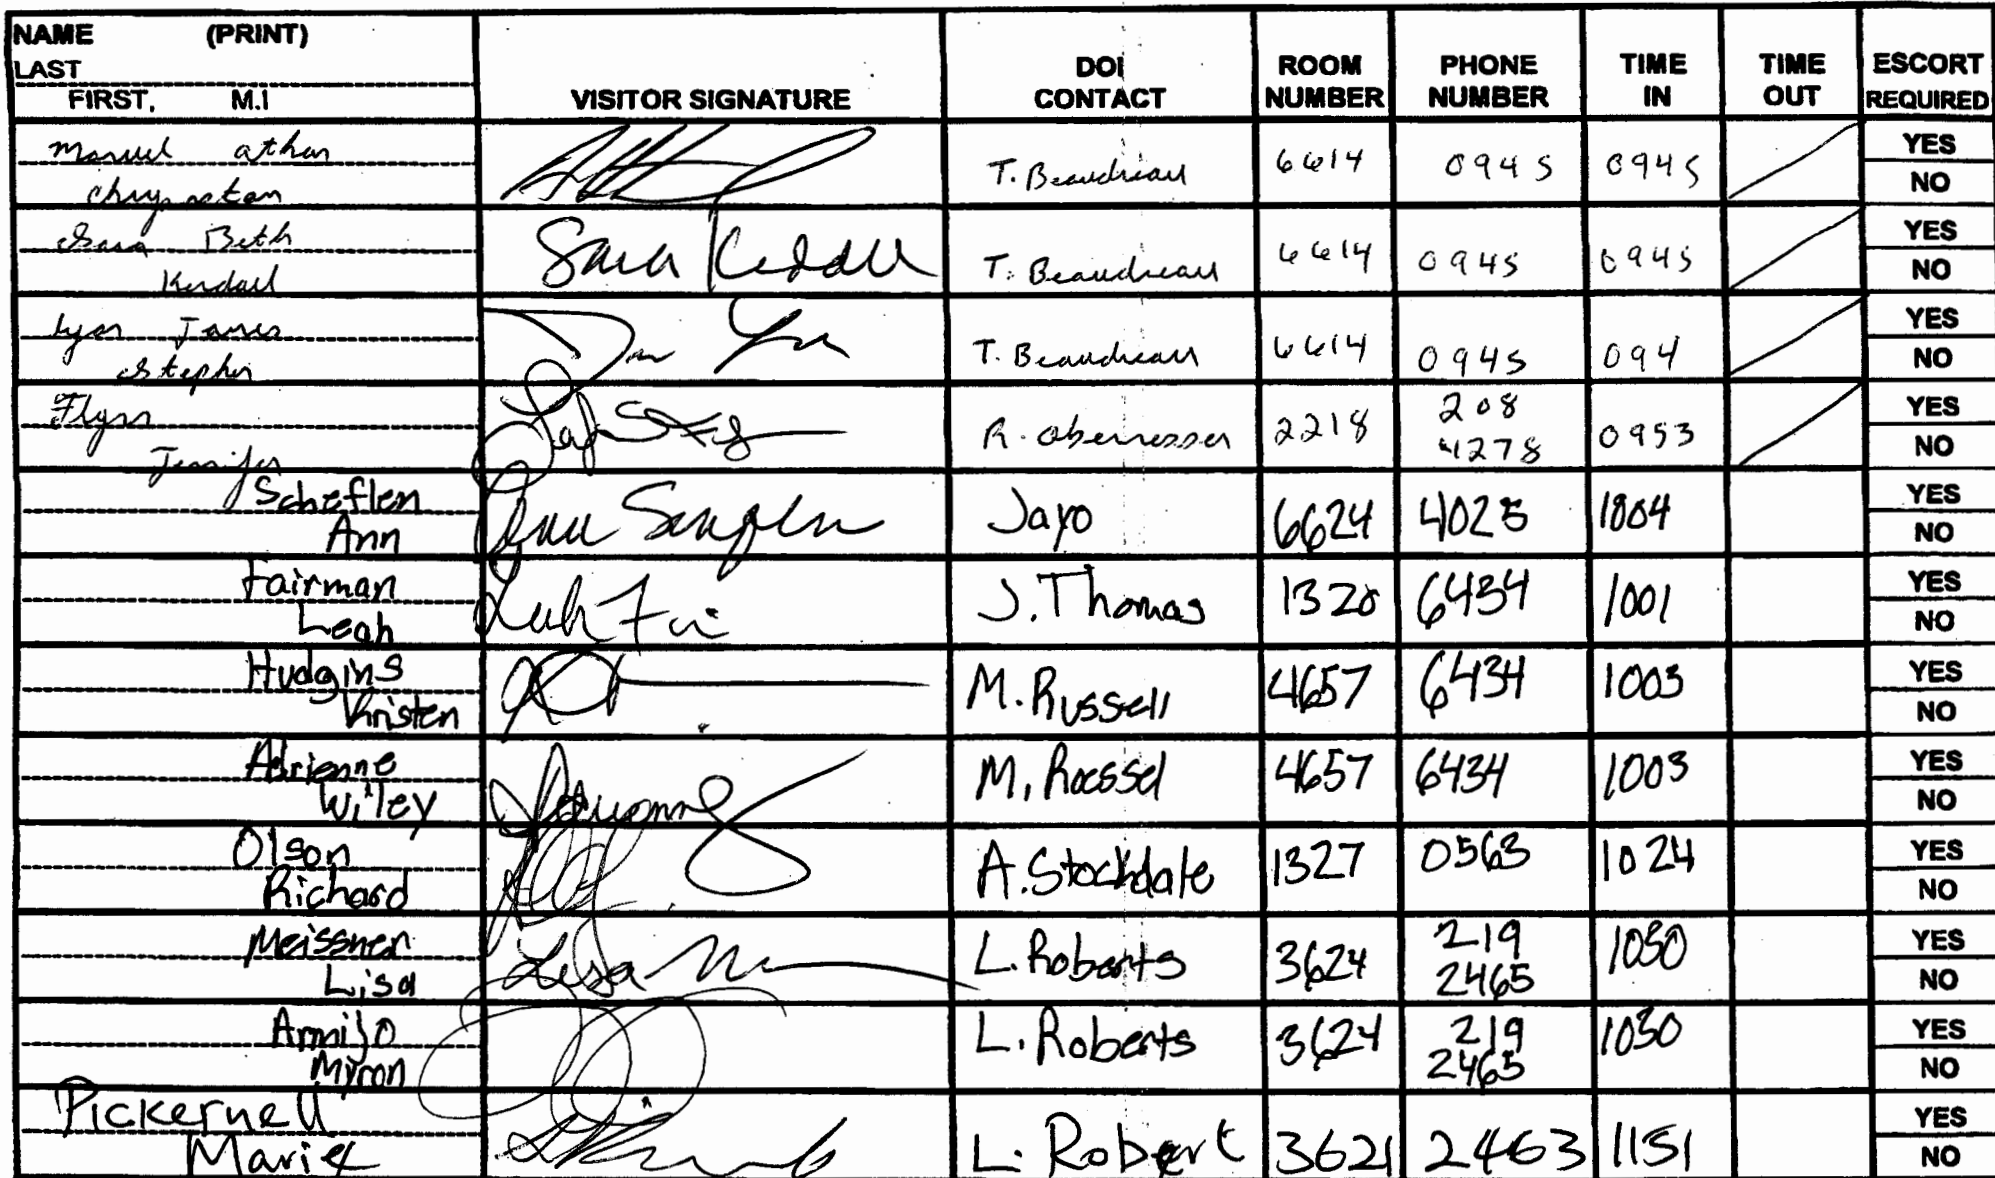 NAME (PRINT)
LAST
FIRST, M.I
VISITOR SIGNATURE
DOI CONTACT
ROOM NUMBER
PHONE NUMBER
TIME IN
TIME OUT
ESCORT REQUIRED
T. Beaudreau 6614 0945 0945 YES
NO
Sara Beth
Kendall
T. Beaudreau 6614 0945 0945 YES
NO
Lyon James
Stephen
T. Beaudreau 6614 0945 094 YES
NO
Flynn
Jennifer
2218 208 0953 YES
4278 NO
Scheflen
Ann
Jayo 6624 4025 1004 YES
NO
Fairman
Leah
J. Thomas 1320 6434 1001 YES
NO
Hudgins
Kristen
M. Russell 4657 6434 1003 YES
NO
Adrienne
Wiley
M. Roessel 4657 6434 1003 YES
NO
Olson
Richard
A. Stockdale 1327 0563 1024 YES
NO
Meissner
Lisa
L. Roberts 3624 219 1030 YES
2465 NO
Armijo
Myron
L. Roberts 3624 219 1030 YES
2465 NO
Pickernell
Marie
L. Robert 3621 2463 1151 YES
NO